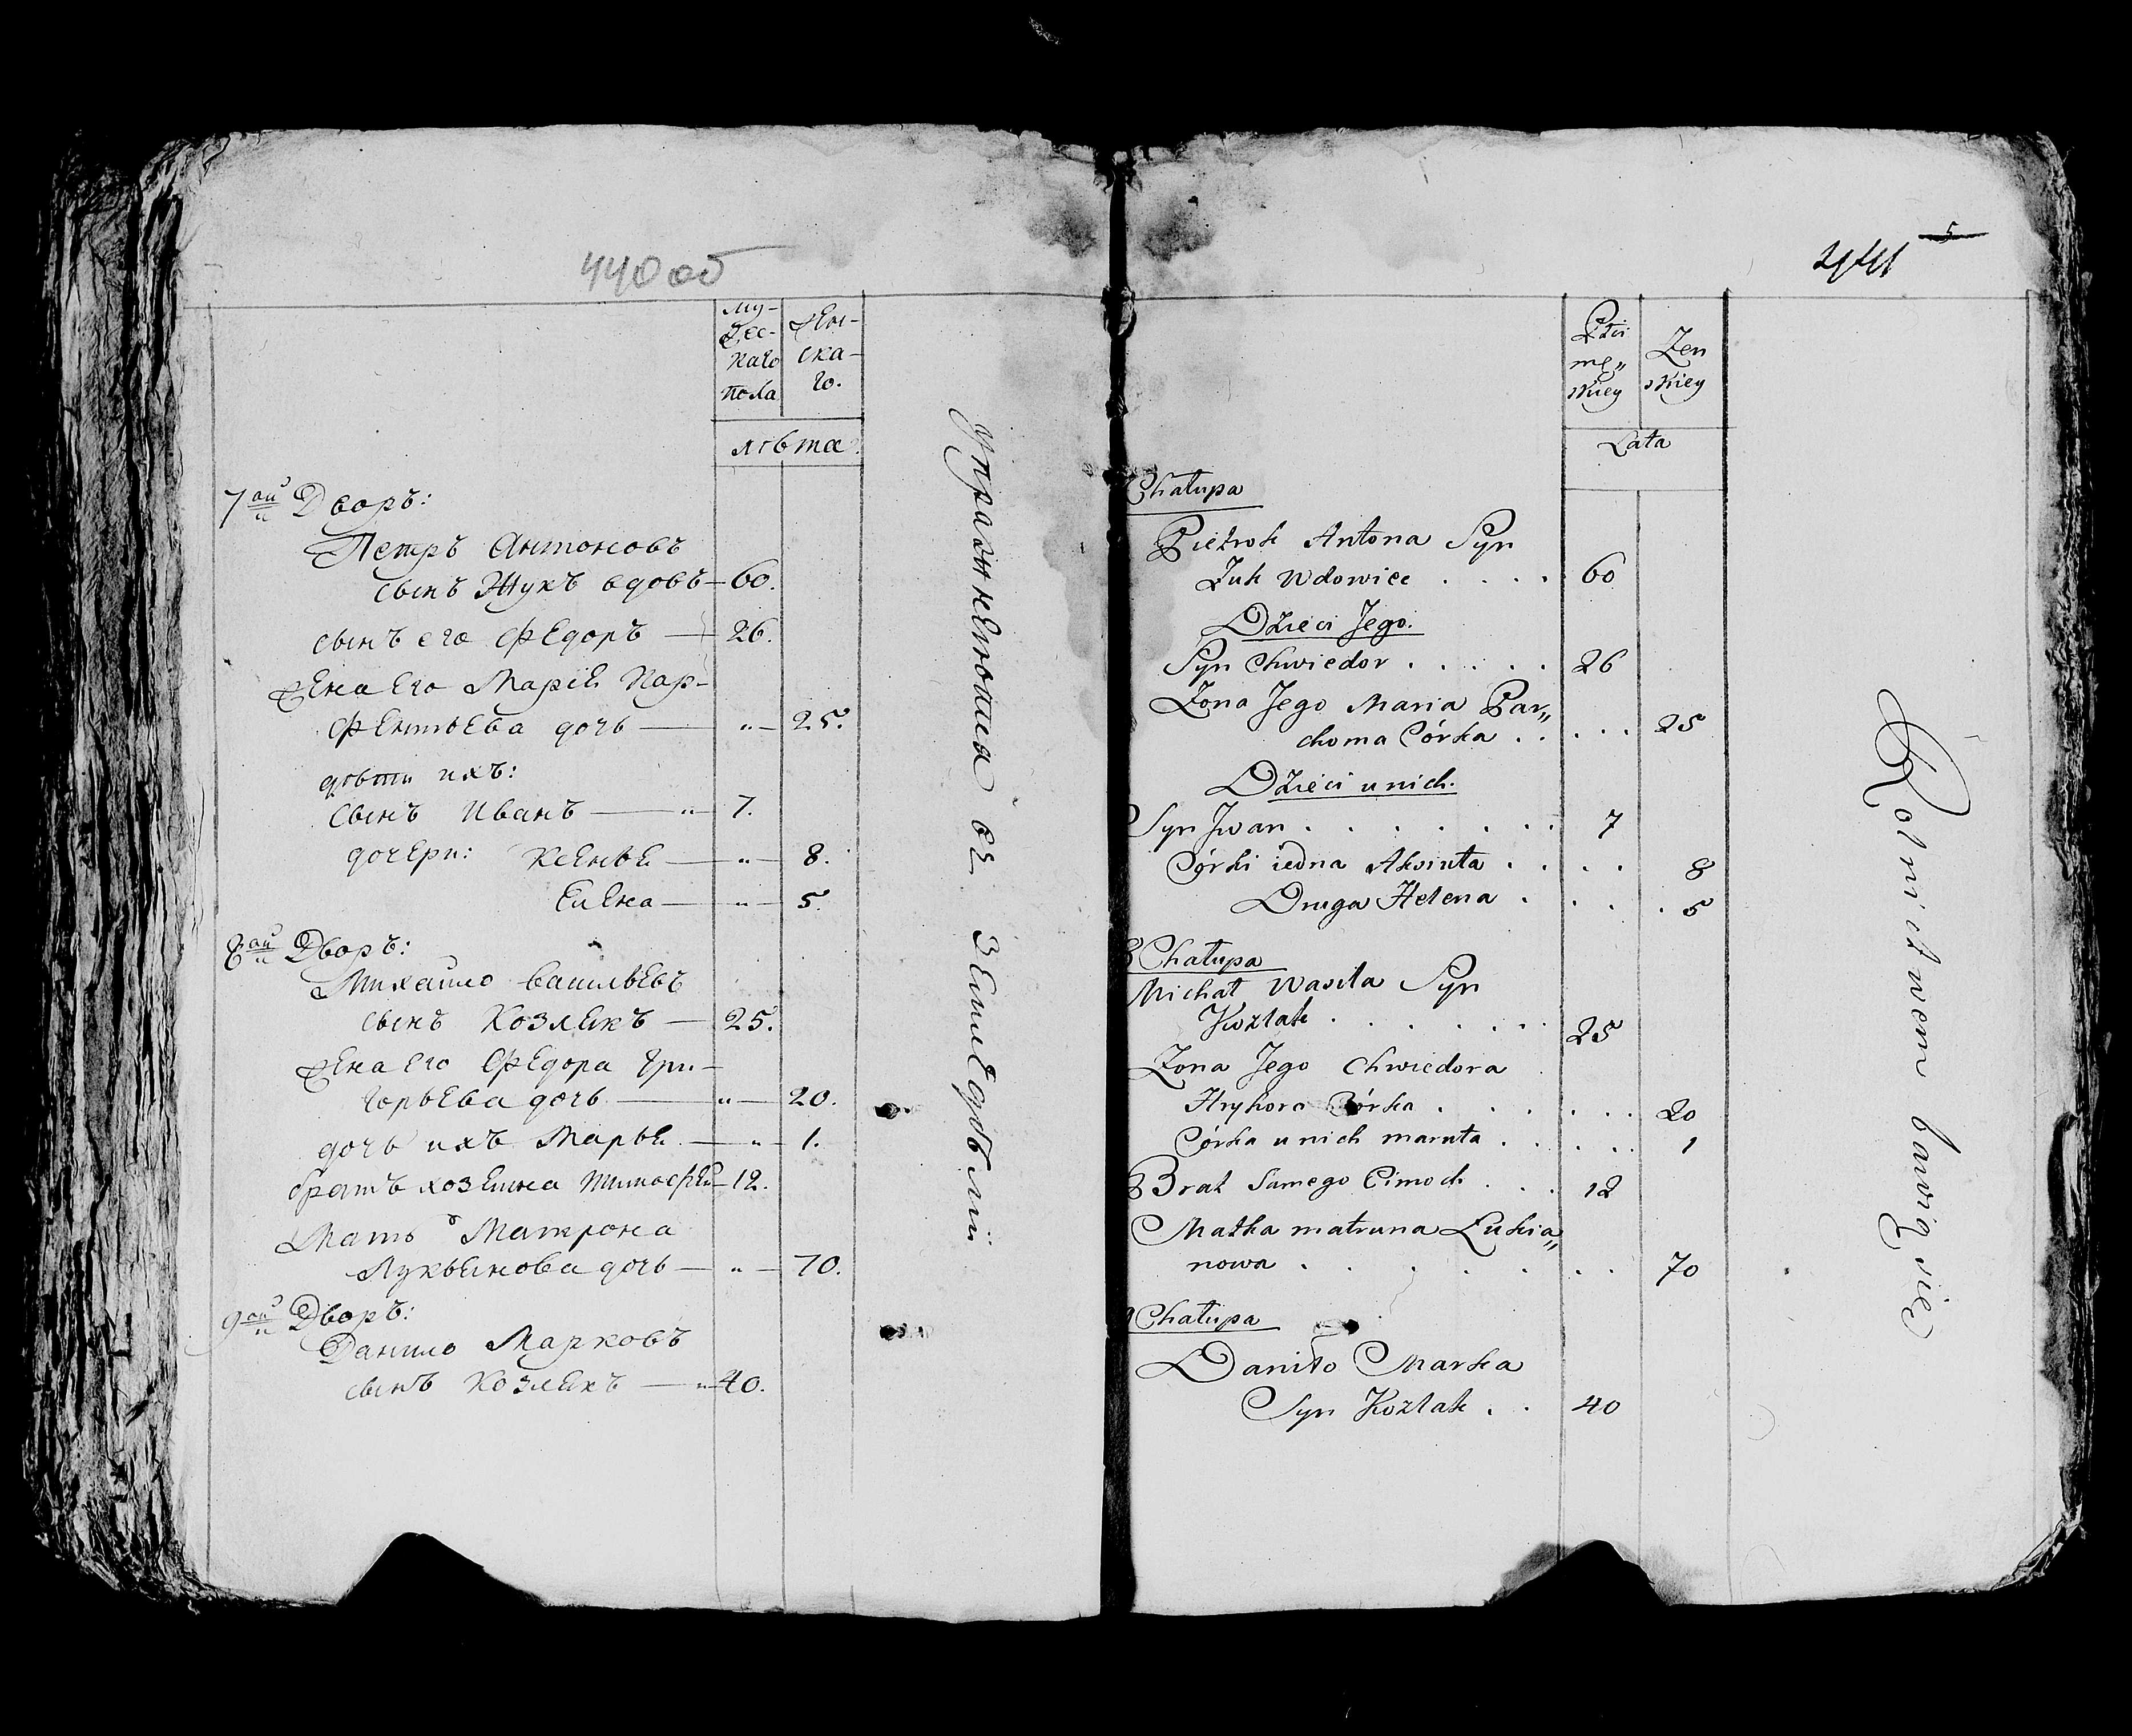 440 об
му-
жес-
каго
пола
жен-
ска-
го.
лѣта.
7ой Дворъ:
Петръ Антоновъ
сынъ Жукъ вдовъ — 60.
сынъ его Федоръ — 26.
жена его Марiя Пар-
фентьева дочь — „ — 25.
дѣти ихъ:
Сынъ Иванъ — „ 7.
дочери: Ксенья — „ — 8.
Елена — „ — 5.
8ой Дворъ:
Михайло Васильевъ
сынъ Козлякъ — 25.
жена его Федора Гри-
горьева дочь — „ — 20.
дочь ихъ Марья — „ — 1.
братъ хозяина Тимофей — 12.
Мать Матрона
Лукьянова дочь — „ — 70.
9ой Дворъ:
Данило Марковъ
сынъ Козлякъ — „ 40.
Упражняются въ Земледѣлiи
5
441
Płci
mę„
skiey
Żen
skiey
Lata
Chałupa
Pietruk Antona Syn
Żuk Wdowiec . . . . 60
Dzieci Jego.
Syn Chwiedor . . . . . 26
Żona Jego Maria Par„
choma Córka . . . . . 25
Dzieci u nich.
Syn Jwan . . . . . . . 7
Córki iedna Aksiuta . . . . 8
Druga Helena . . . . 5
8 Chałupa
Michał Wasila Syn
Kozlak . . . . . . . 25
Żona Jego Chwiedora
Hryhora Córka . . . . . . 20
Córka u nich maruta . . . . . 1
Brat Samego Cimoch . . . 12
Matka matruna Łukia„
nowa . . . . . . . 70
9 Chałupa
Daniło Marka
Syn Kozlak . . 40
Rolnictwem bawią się